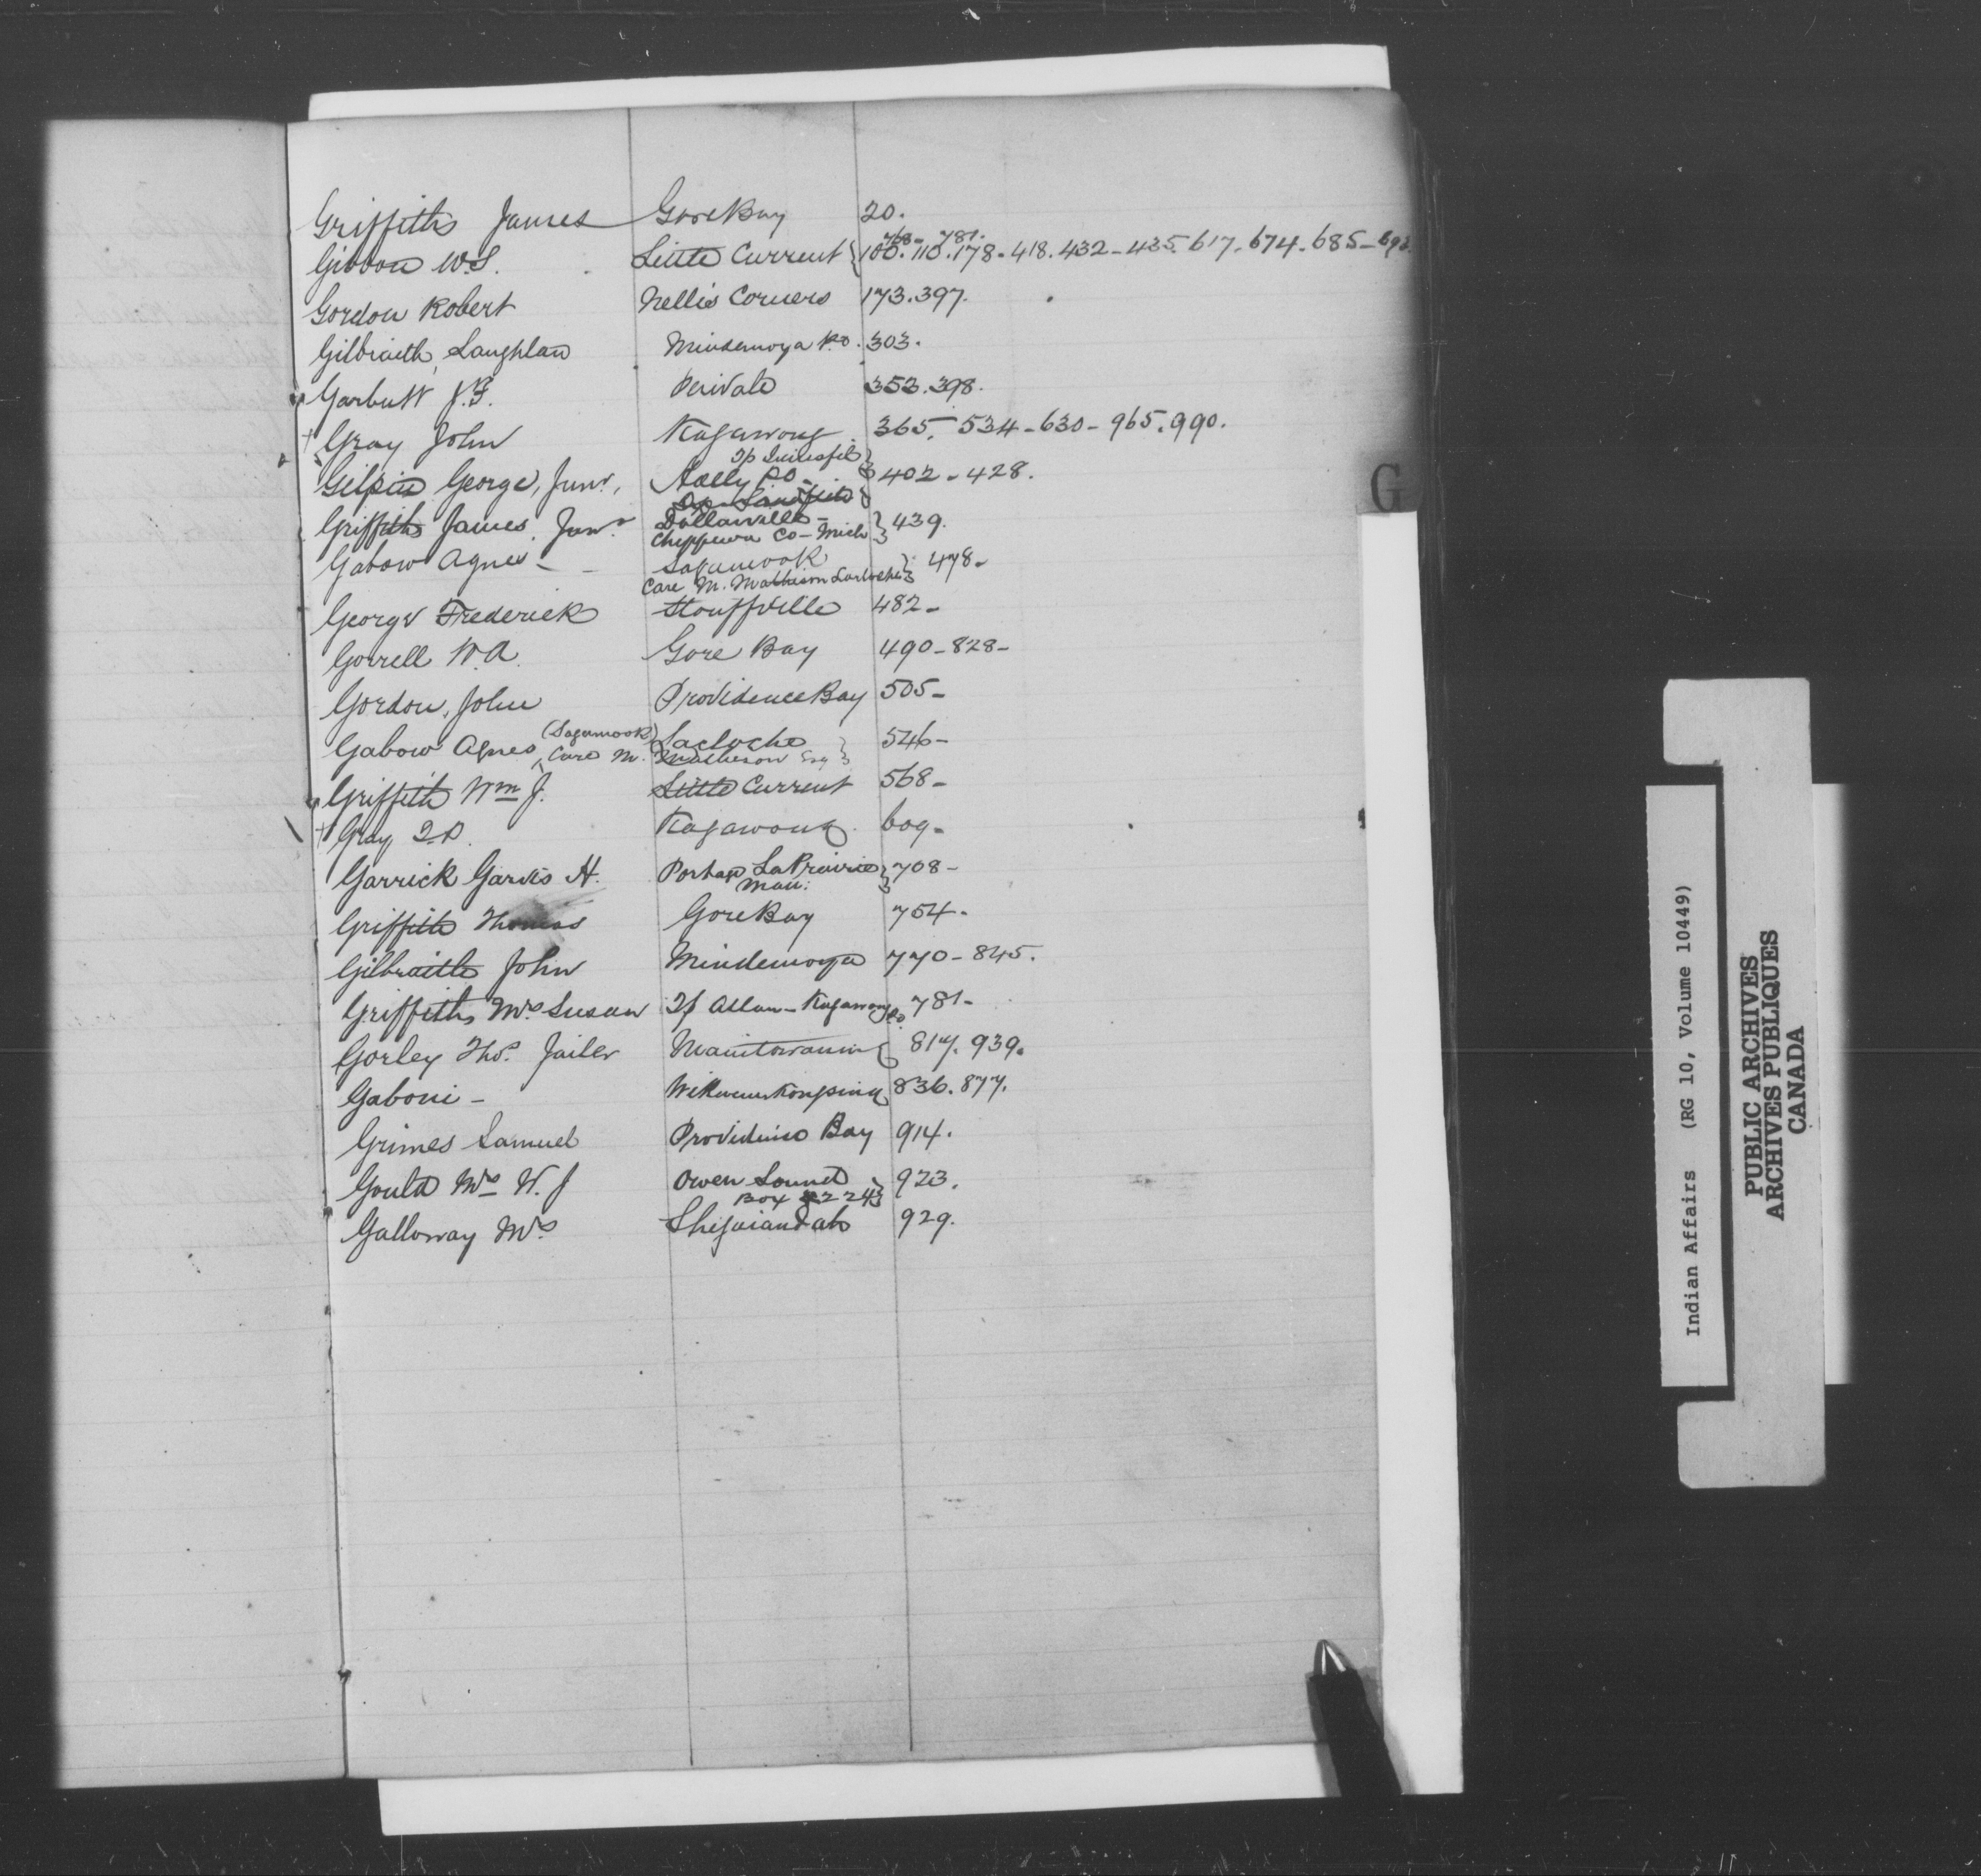 Griffith James Gore Bay 20.
768- 781.
Gibbon W.S. Little Current { 100. 110. 178. 418. 432 - 435. 617. 674. 685 - 692.
Gordon Robert Nellis Corners 173. 397.
Gilbraith, Laughlan Mindemoya P.O. 303.
Garbutt J.F. Perivale 353. 398.
+ Gray John Kagawong 365. 534 - 630 - 965. 990.
Gilpin George, Junr, P.O. } 402 - 428.
Tp Sandfield
Griffith James Junr Dollarville - } 439.
Chippewa Co - Mich
Gabow Agnes - Sagamook } 478 -
Care M. Matheson Lacloche
George Frederick Stouffville 482 -
Gorrell W.A. Gore Bay 490 - 828 -
Gordon, John Providence Bay 505 -
Gabow Agnes (Sagamook) Lacloche } 546 -
Care M. Matheson Esq
Griffith Wm J. Little Current 568 -
+ Gray Kagawong 609 -
Garrick Garvis H. Portage La Prairie } 708 -
Man:
Griffith Thomas Gore Bay 754.
Gilbraith John Mindemoya 770 - 845.
Griffith, Mrs Susan Tp Allan - Kagawong P.O. 781 -
Gorley Thos. Jailer Manitowaning 817. 939.
Gaboni - Wikwemikongsing 836. 877.
Grimes Samuel Providence Bay 914.
Gould Mrs W. J Owen Sound } 923.
Box 224
Galloway Mrs Sheguiandah 929.
G
Indian Affairs (RG 10, Volume 10449)
PUBLIC ARCHIVES
ARCHIVES PUBLIQUES
CANADA